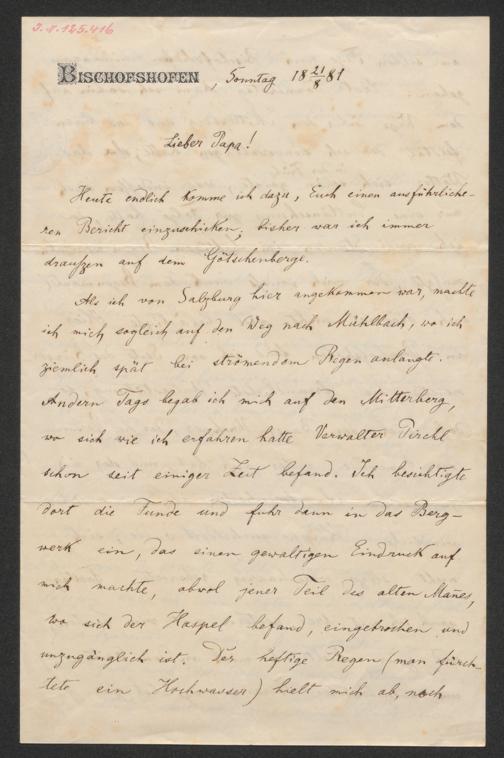 J.N. 165.416
BISCHOFSHOFEN, Sonntag 18 21/8 81
Lieber Papa!
Heute endlich komme ich dazu, Euch einen ausführliche-
ren Bericht einzuschicken; bisher war ich immer
draußen auf dem Götschenberge.
Als ich von Salzburg hier angekommen war, machte
ich mich sogleich auf den Weg nach Mühlbach, wo ich
ziemlich spät bei strömendom Regen anlangte.
Andern Tags begab ich mich auf den Mitterberg,
wo sich wie ich erfahren hatte Verwalter Pirchl
schon seit einiger Zeit befand. Ich besichtigte
dort die Funde und fuhr dann in das Berg-
werk ein, das einen gewaltigen Eindruck auf
mich machte, obwol jener Teil des alten Manes,
wo sich der Haspel befand, eingebrochen und
unzugänglich ist. Der heftige Regen (man fürch-
tete ein Hochwasser) hielt mich ab, noch